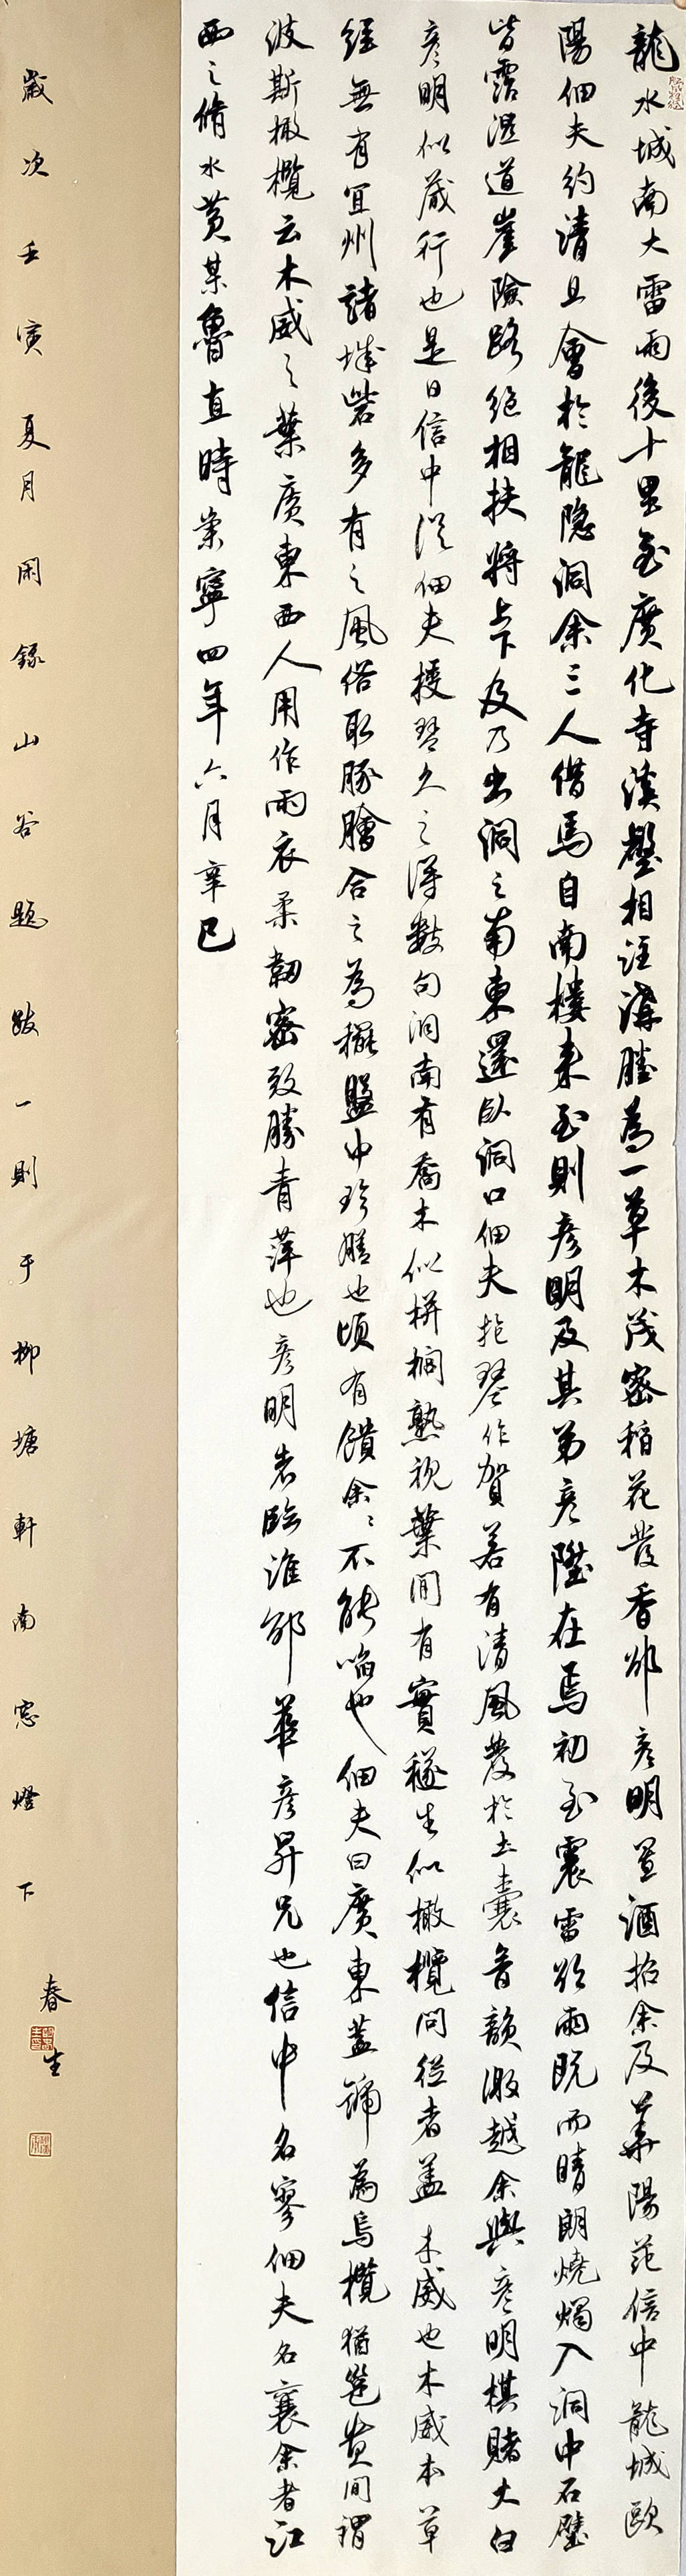 龍水城南大雷雨後十里至廣化寺溪壑相注溝塍為一草木茂密稻花發香邵彥明置酒招余及華陽范信中龍城歐
陽佃夫約清旦會於龍隱洞余三人借馬自南樓來至則彥明及其弟彥陞在焉初至震雷欲雨既而晴朗燒燭入洞中石壁
皆霑濕道崖險路絕相扶將上下及乃出洞之南東還臥洞口佃夫抱琴作賀若有清風發於土囊音韻激越余與彥明棋賭大白
彥明似藏行也是日信中從佃夫授琴久之得數句洞南有喬木似栟櫚熟視葉間有實穟生似橄欖問從者蓋木威也木威本草
經無有宜州諸城砦多有之風俗取豚膾合之為攡盤中珍膳也頃有饋余余不能啗也佃夫曰廣東蓋號為烏欖猶邕貴間謂
波斯橄欖云木威之葉廣東西人用作雨衣柔韌密致勝青萍也彥明者臨淮邵華彥昇兄也信中名寥佃夫名襄余者江
西之脩水黃某魯直時崇寧四年六月辛巳
歲次壬寅夏月閑錄山谷題跋一則于柳塘軒南窓燈下
春生